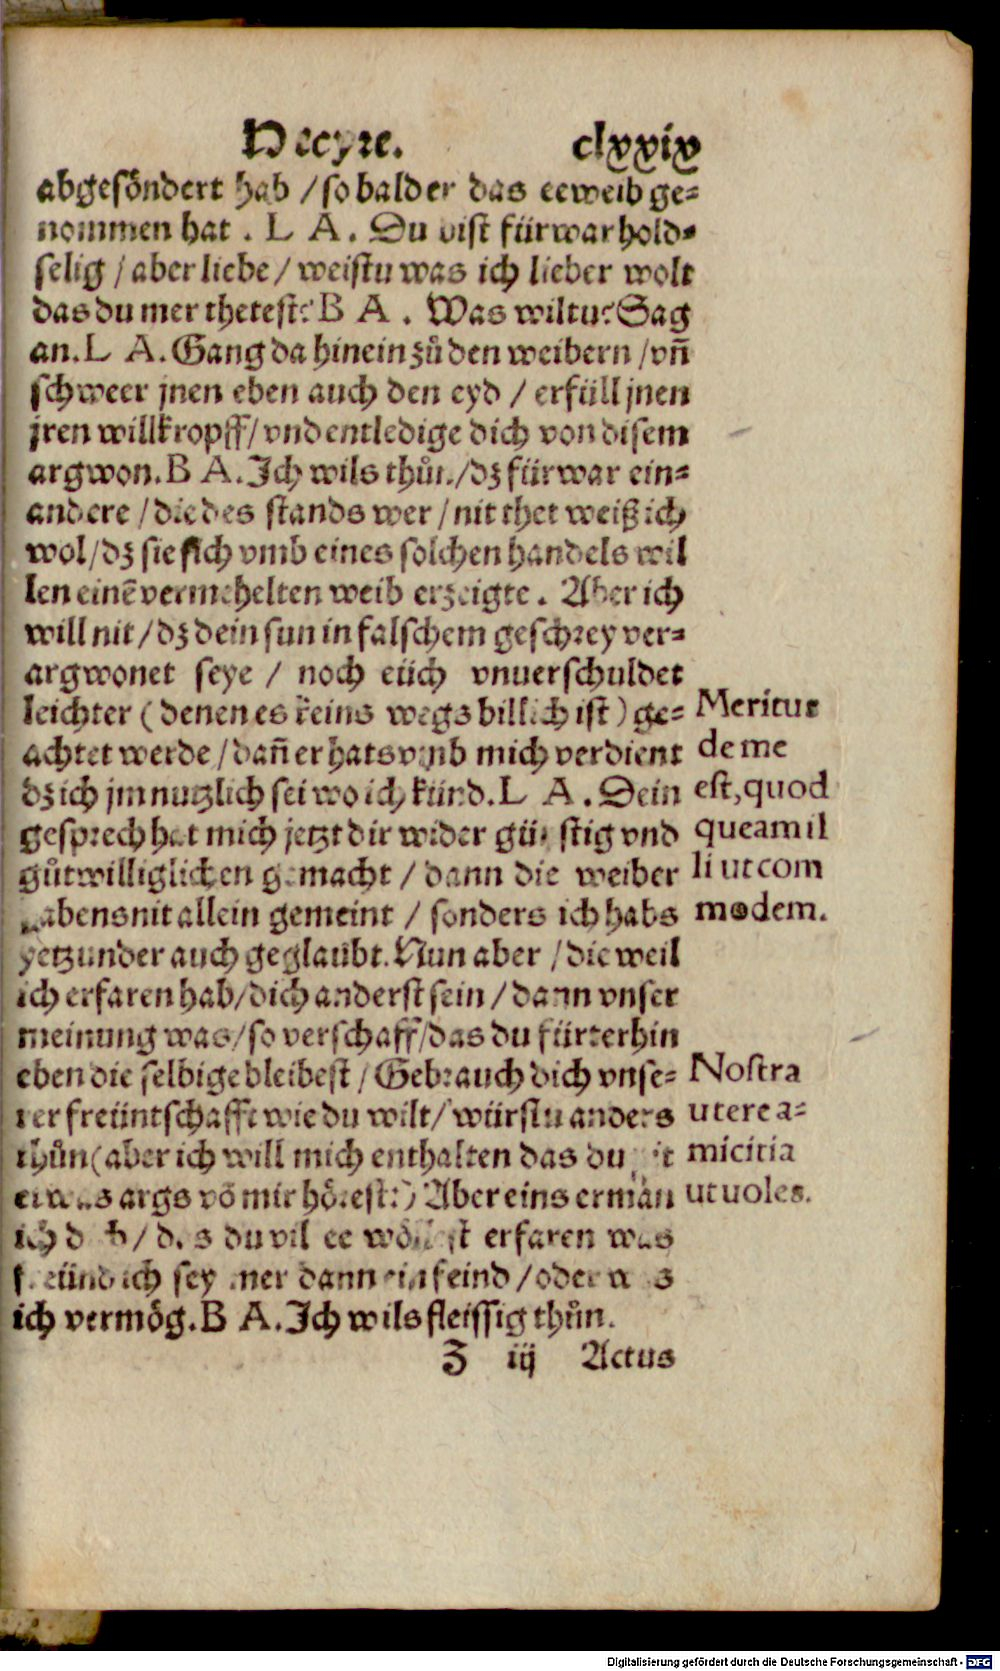 Hecyre. clxxix
abgesöndert hab / so bald er das eeweib ge=
nommen hat. L A. Du bist fürwar hold=
selig / aber liebe / weistu was ich lieber wolt
das du mer thetest? B A. Was wiltu? Sag
an. L A. Gang da hinein zů den weibern / vñ
schweer jnen eben auch den eyd / erfüll jnen
jren willkropff / vnd entledige dich von disem
argwon. B A. Ich wils thůn / dz fürwar ein=
andere / die des stands wer / nit thet weiß ich
wol / dz sie sich vmb eines solchen handels wil
len einē vermehelten weib erzeigte. Aber ich
will nit / dz dein sun in falschem geschrey ver=
argwonet seye / noch eüch vnuerschuldet
leichter (denen es keins wegs billich ist) ge=
achtet werde / dañ er hats vmb mich verdient
dz ich jm nutzlich sei wo ich künd. L A. Dein
gesprech hat mich jetzt dir wider günstig vnd
gůtwilliglichen gemacht / dann die weiber
habens nit allein gemeint / sonders ich habs
yetzunder auch geglaubt. Nun aber / die weil
ich erfaren hab / dich anderst sein / dann vnser
meinung was / so verschaff / das du fürterhin
eben die selbige bleibest / Gebrauch dich vnse=
rer freüntschafft wie du wilt / würstu anders
thůn (aber ich will mich enthalten das du nit
etwas args vō mir hörest?) Aber eins erman
ich dich / das du vil ee wöllest erfaren was
freünd ich sey mer dann ein feind / oder was
ich vermög. B A. Ich wils fleissig thůn.
Z iij Actus
Meritus
de me
est, quod
queam il
li ut com
modem.
Nostra
utere a=
micitia
ut uoles.
Digitalisierung gefördert durch die Deutsche Forschungsgemeinschaft - DFG